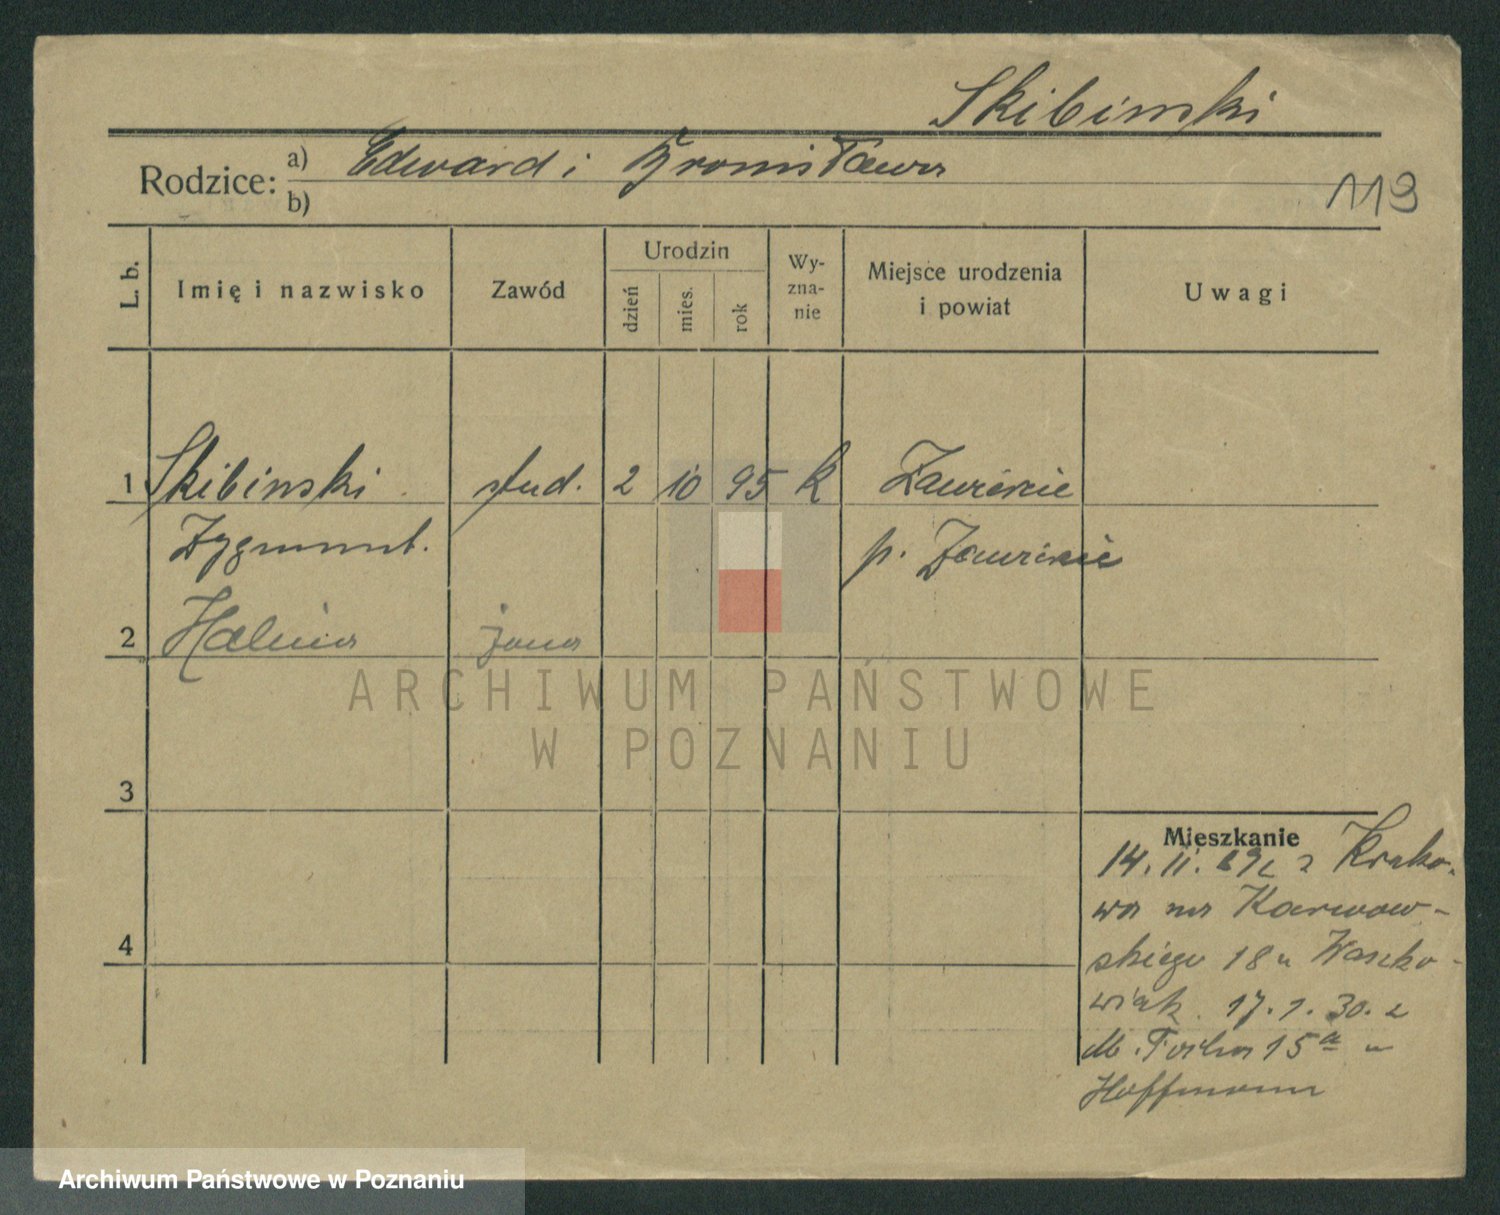 Skibinski
Rodzice: a) Edward i Bronisława
b)
113
L. b.
Imię i nazwisko
Zawód
Urodzin
dzień
mies.
rok
Wy-
zna-
nie
Miejsce urodzenia
i powiat
Uwagi
1 Skibinski stud. 2 10 95 k Zawiercie
Zygmunt. p. Zawiercie
2 Halina żona
3
4
Mieszkanie
14. 11. z Krako-
wa na Karwow-
skiego 18 u Waszko-
wiak 17. 1. 30. z
M. Focha 15a u
Hoffmann
ARCHIWUM PAŃSTWOWE
W POZNANIU
Archiwum Państwowe w Poznaniu